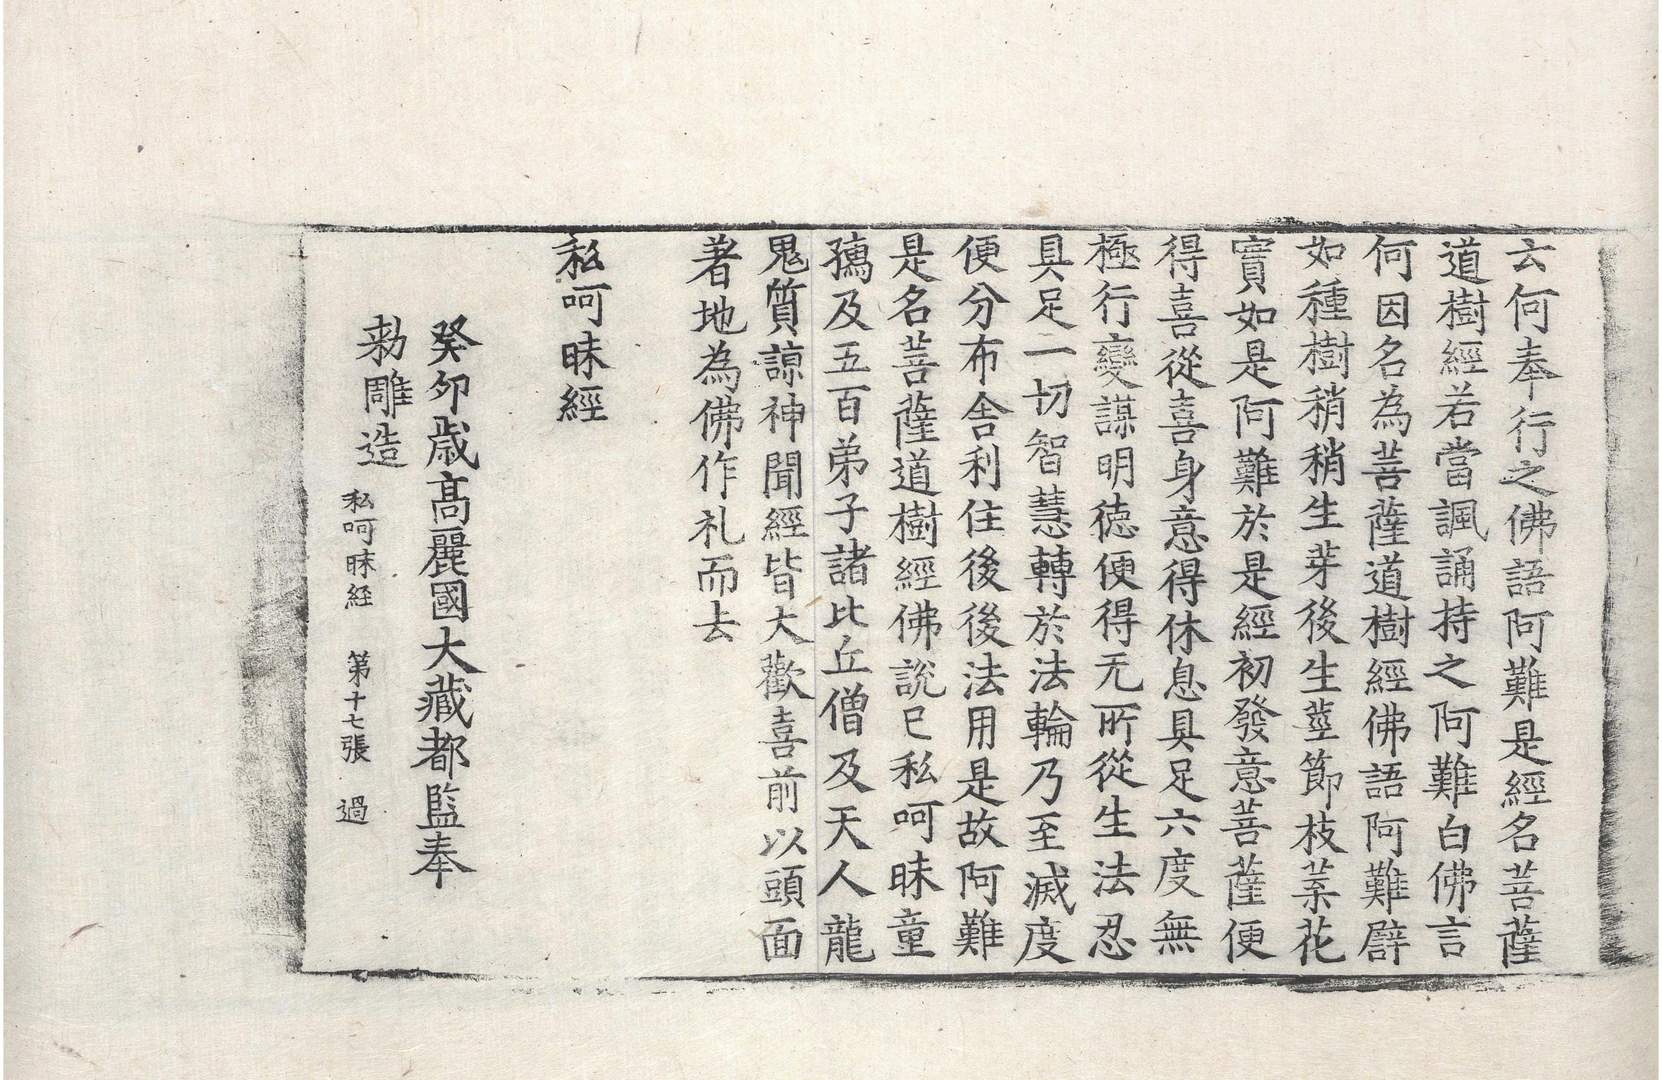 云何奉行之佛語阿難是經名菩薩
道樹經若當諷誦持之阿難白佛言
何因名為菩薩道樹經佛語阿難辟
如種樹稍稍生芽後生莖節枝葉花
實如是阿難於是經初發意菩薩便
得喜從喜身意得休息具足六度無
極行變謀明徳便得无所從生法忍
具足一切智慧轉於法輪乃至滅度
便分布舍利住後後法用是故阿難
是名菩薩道樹經佛說已私呵昧童
孺及五百弟子諸比丘僧及天人龍
鬼質諒神聞經皆大歡喜前以頭面
著地為佛作礼而去
私呵昧經
癸卯歲高麗國大藏都監奉
勑雕造
私呵昧経 第十七張 過